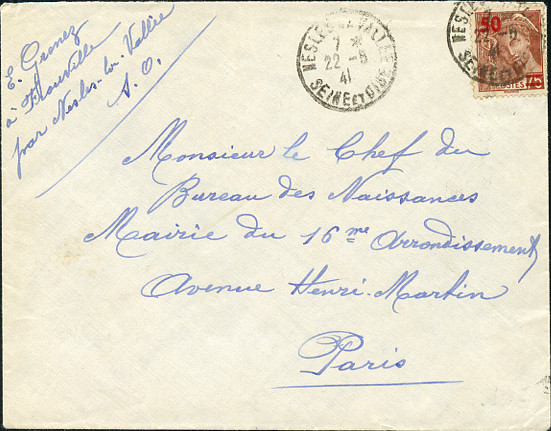 E. Grenez
à Frouville
par Nesles-la-Vallée
S. O.
NESLES-LA-VALLÉE
7 *
22 -
41
SEINE ET OISE
50
POSTES 75
Monsieur le Chef du
Bureau des Naissances
Mairie du 16 me Arrondissement
Avenue Henri-Martin
Paris